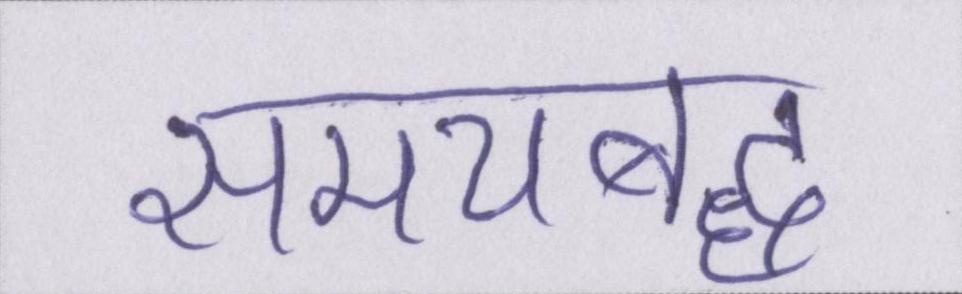 समयबद्ध